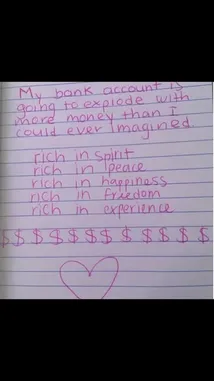 My bank account is
going to explode with
more money than I
could ever imagined
rich in spirit
rich in peace
rich in happiness
rich in freedom
rich in experience
$ $ $ $ $ $ $ $ $ $ $ $ $